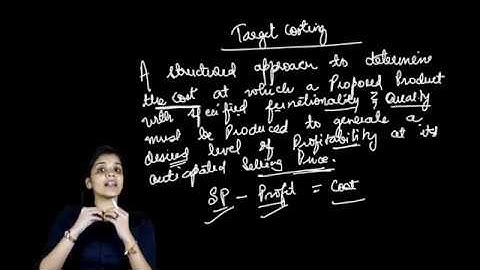 Target Costing
A structured approach to determine
the cost at which a Proposed Product
with specified functionality & Quality
must be Produced to generate a
desired level of Profitability at its
anticipated Selling Price.
SP - Profit = Cost